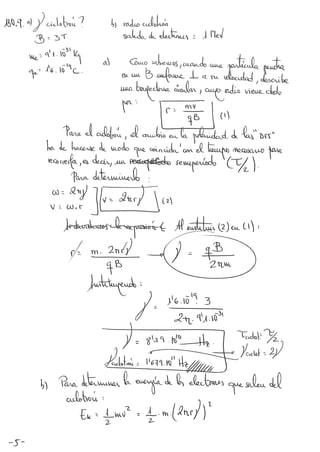 a) ν ciclotrón?
B = 3T
me = 9'1·10⁻³¹ Kg
b) radio ciclotrón
salida de electrones = 1 MeV
a) Como sabemos, cuando una partícula penetra
en un B uniforme ⊥ a su velocidad, describe
una trayectoria circular, cuyo radio viene dado
por: r = mv/qB (1)
Para el ciclotrón, el cambio en la polaridad de las "DES"
ha de hacerse de modo que coincida con el tiempo necesario para
recorrerla, es decir, un semiperiodo (T/2).
Para determinarlo:
ω = 2πν
v = ω·r
v = 2πrν (2)
Al sustituir (2) en (1):
r = m·2πrν/qB → ν = qB/2πm
Sustituyendo:
ν = 1'6·10⁻¹⁹·3/2π·9'1·10⁻³¹
ν = 8'39·10¹⁰ Hz
T ciclot = T/2
ν ciclot = 2ν
ν ciclotrón = 1'679·10¹¹ Hz
b) Para determinar la energía de los electrones que salen del
ciclotrón:
Ek = 1/2 mv² = 1/2·m(2πrν)²
-5-